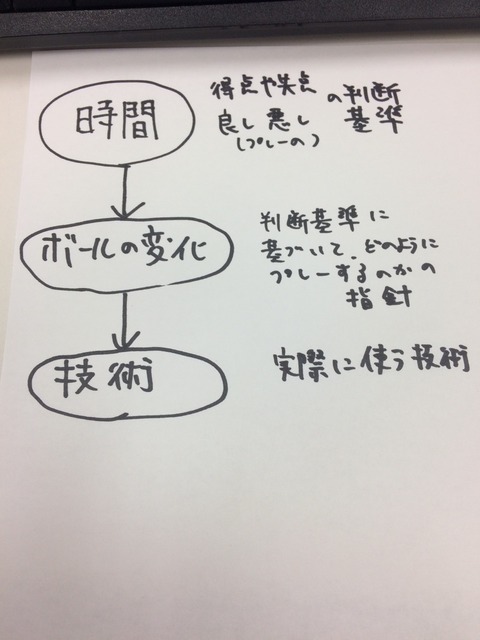 時間
得点や失点
良し悪し
(プレーの)
の判断
基準
ボールの変化
判断基準に
基づいて、どのように
プレーするのかの
指針
技術
実際に使う技術